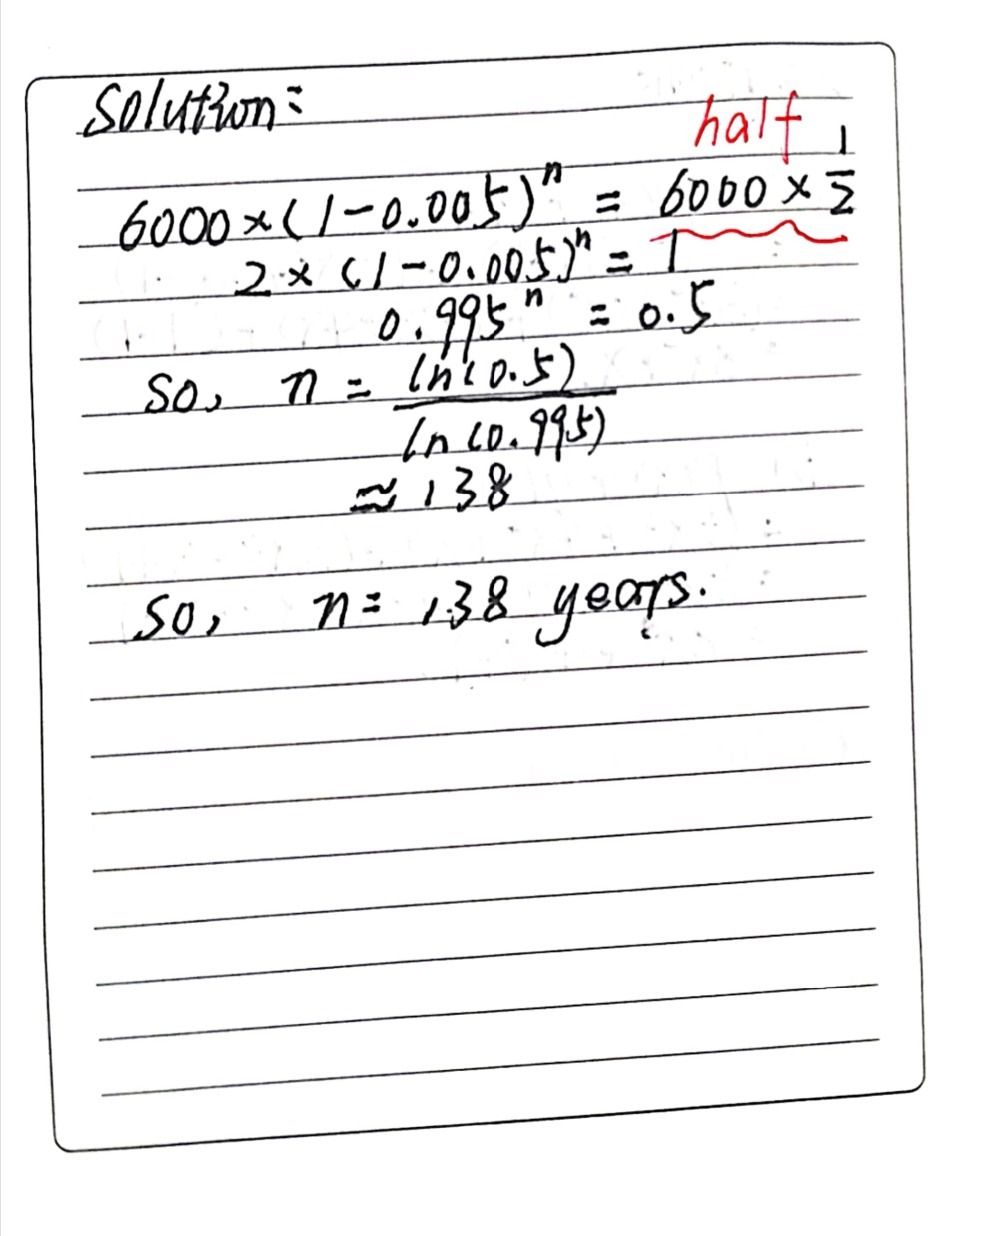 Solution:
half
6000×(1-0.005)ⁿ = 6000 × 1/2
2×(1-0.005)ⁿ = 1
0.995ⁿ = 0.5
so, n = ln(0.5)
ln(0.995)
≈ 138
so, n = 138 years.